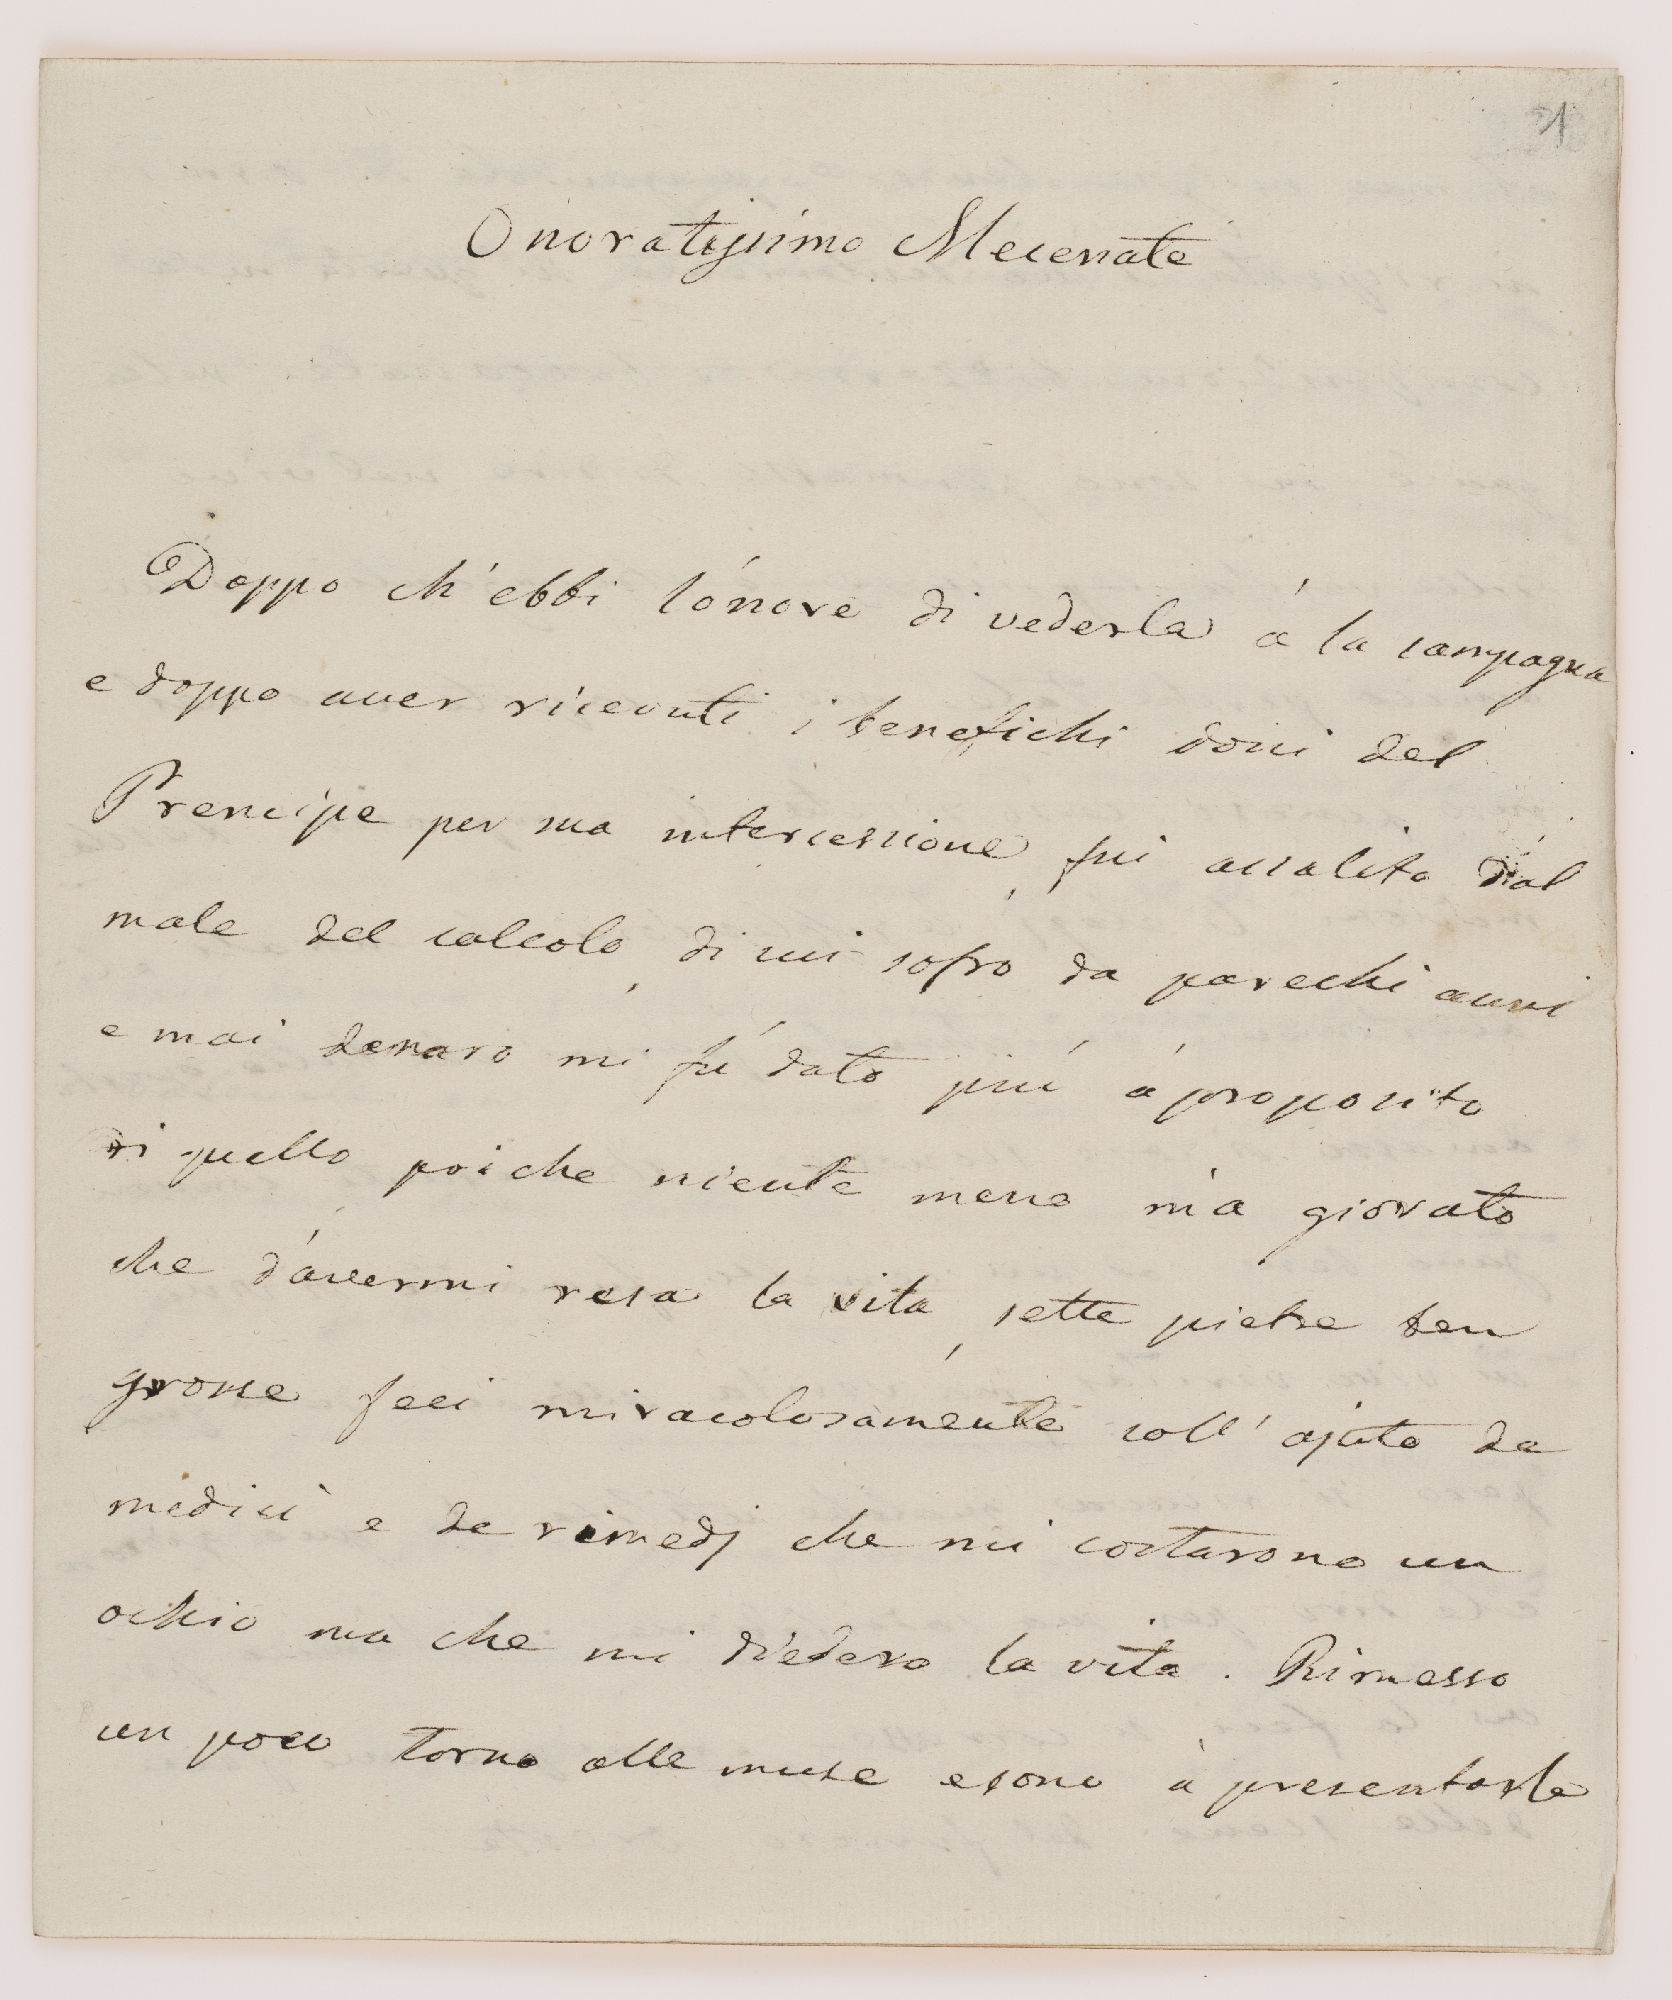 21
Onoratissimo Mecenate
Doppo ch'ebbi l'onore di vederla á la campagna
e doppo aver ricevuti i benefichi doni del
Prencipe per sua intercessione, fui assalito dal
male del calcolo, di cui sofro da parechi anni
e mai denaro mi fú dato piú á proposito
di quello poiche niente meno m'a giovato
che d'avermi resa la vita, sette pietre ben
grosse feci miracolosamente coll' ajuto de
medici e de rimedj che mi costarono un
ochio ma che mi diedero la vita. Rimesso
un poco torno alle muse e sono à presentarle